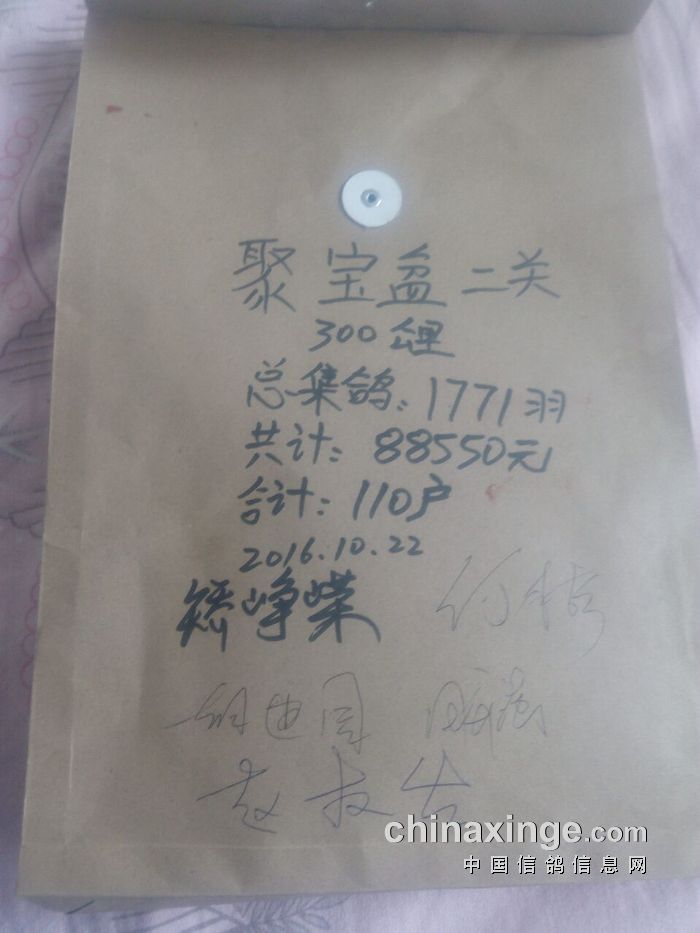 聚宝盆二关
300公里
总集鸽:1771羽
共计:88550元
合计:110户
2016.10.22
矫峥嵘
chinaxinge.com
中国信鸽信息网